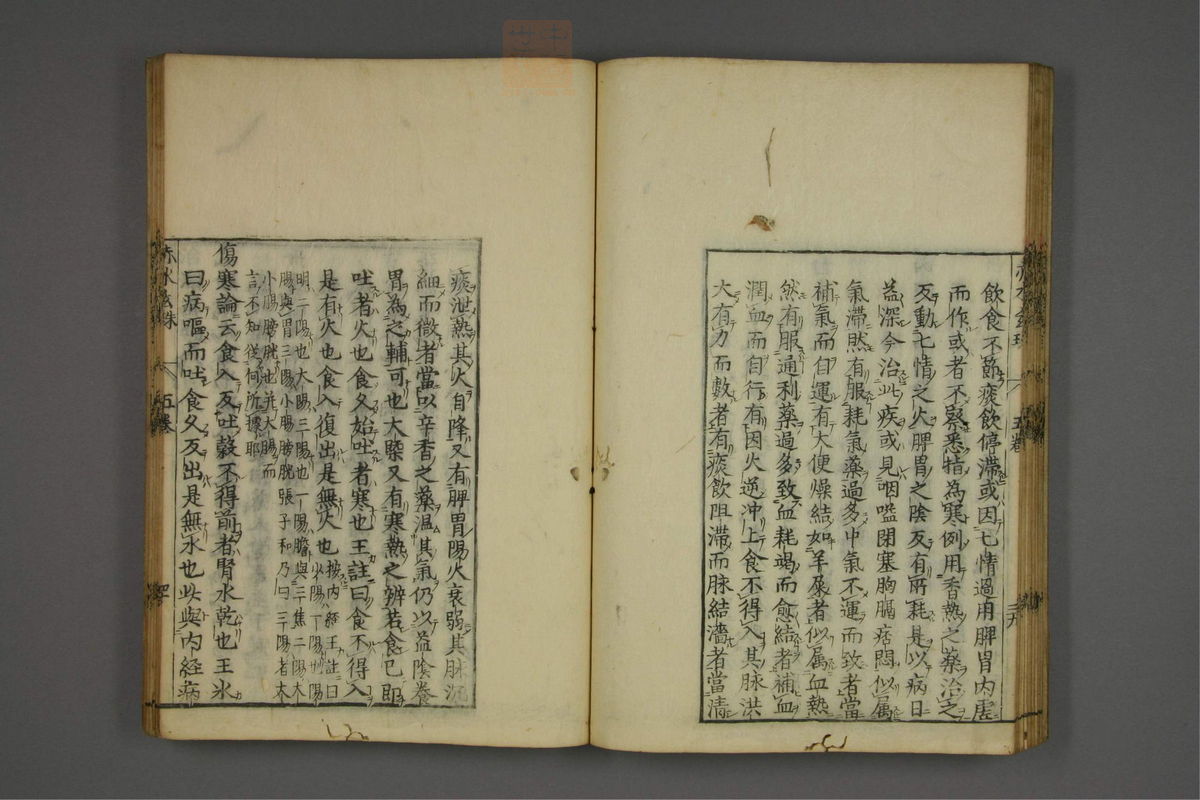 飲食不節痰飲停滯或因七情過用脾胃內虛
而作或者不察悉指為寒例用香熱之藥治之
反動七情之火脾胃之陰反有所耗是以病日
益深今治此疾或見咽嗌閉塞胸膈痞悶似属
氣滯然有服耗氣藥過多中氣不運而致者當
補氣而自運有大便燥結如羊屎者似属血熱
然有服通利藥過多致血耗竭而愈結者補血
潤血而自行有因火逆冲上食不得入其脉洪
大有力而數者有痰飲阻滯而脉結濇者當清
痰泄熱其火自降又有脾胃陽火衰弱其脉沉
細而微者當以辛香之藥温其氣仍以益陰養
胃為之輔可也大槩又有寒熱之辨若食已即
吐者火也食久始吐者寒也王註曰食不得入
是有火也食入復出是無火也按内經王註曰
明二陽也大陽三陽也一陽膽與三焦二陽大
腸與胃三陽小腸膀胱張子和乃曰三陽者大
小腸膀胱也并大腸而
言不知從何所據耶
傷寒論云食入反吐穀不得前者腎水乾也王氷
曰病嘔而吐食久反出是無水也此與内経病
赤水玄珠
五卷